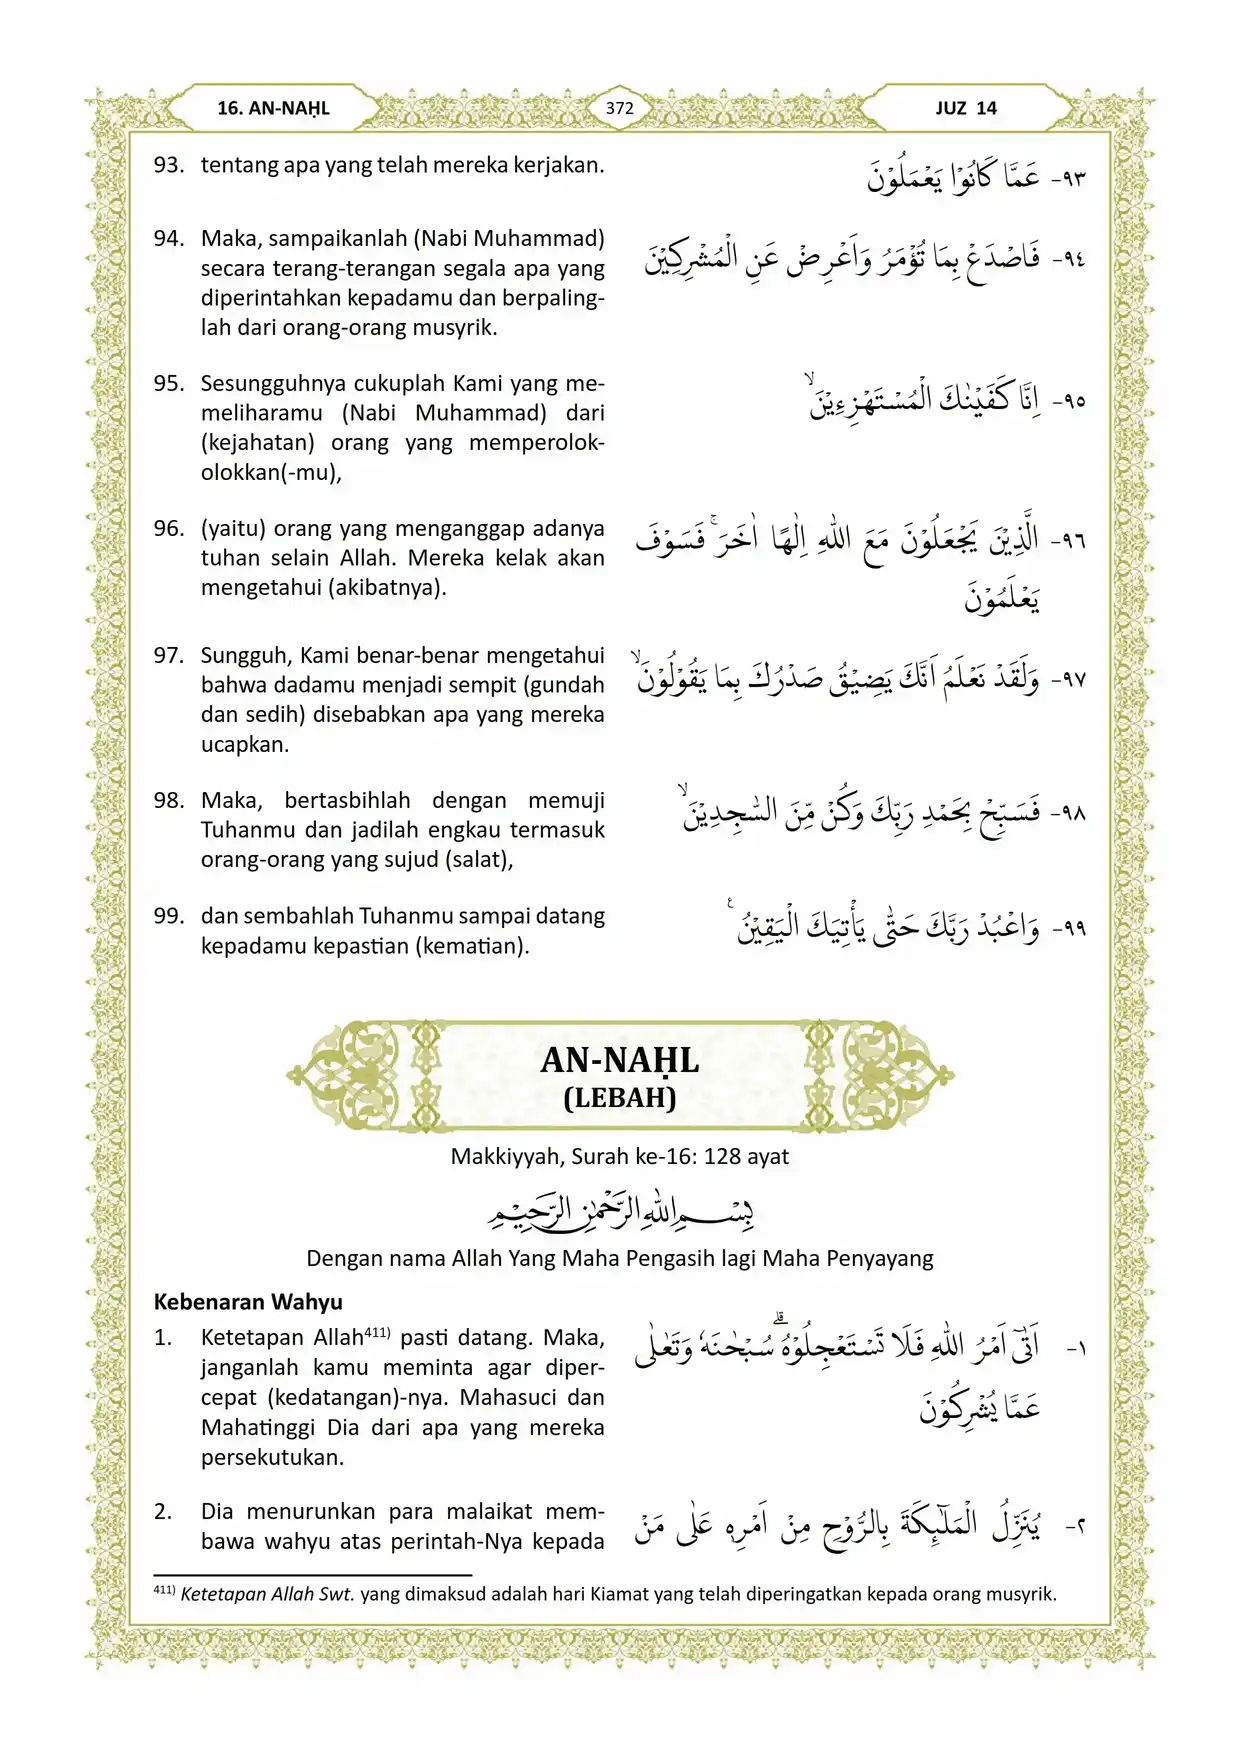 16. AN-NAḤL
372
JUZ 14
93. tentang apa yang telah mereka kerjakan.
٩٣- عَمَّا كَانُوْا يَعْمَلُوْنَ
94. Maka, sampaikanlah (Nabi Muhammad)
secara terang-terangan segala apa yang
diperintahkan kepadamu dan berpaling-
lah dari orang-orang musyrik.
٩٤- فَاصْدَعْ بِمَا تُؤْمَرُ وَاَعْرِضْ عَنِ الْمُشْرِكِيْنَ
95. Sesungguhnya cukuplah Kami yang me-
meliharamu (Nabi Muhammad) dari
(kejahatan) orang yang memperolok-
olokkan(-mu),
٩٥- اِنَّا كَفَيْنٰكَ الْمُسْتَهْزِءِيْنَۙ
96. (yaitu) orang yang menganggap adanya
tuhan selain Allah. Mereka kelak akan
mengetahui (akibatnya).
٩٦- الَّذِيْنَ يَجْعَلُوْنَ مَعَ اللّٰهِ اِلٰهًا اٰخَرَۚ فَسَوْفَ
يَعْلَمُوْنَ
97. Sungguh, Kami benar-benar mengetahui
bahwa dadamu menjadi sempit (gundah
dan sedih) disebabkan apa yang mereka
ucapkan.
٩٧- وَلَقَدْ نَعْلَمُ اَنَّكَ يَضِيْقُ صَدْرُكَ بِمَا يَقُوْلُوْنَۙ
98. Maka, bertasbihlah dengan memuji
Tuhanmu dan jadilah engkau termasuk
orang-orang yang sujud (salat),
٩٨- فَسَبِّحْ بِحَمْدِ رَبِّكَ وَكُنْ مِّنَ السّٰجِدِيْنَۙ
99. dan sembahlah Tuhanmu sampai datang
kepadamu kepastian (kematian).
٩٩- وَاعْبُدْ رَبَّكَ حَتّٰى يَأْتِيَكَ الْيَقِيْنُ ࣖ
AN-NAḤL
(LEBAH)
Makkiyyah, Surah ke-16: 128 ayat
بِسْمِ اللّٰهِ الرَّحْمٰنِ الرَّحِيْمِ
Dengan nama Allah Yang Maha Pengasih lagi Maha Penyayang
Kebenaran Wahyu
1. Ketetapan Allah⁴¹¹⁾ pasti datang. Maka,
janganlah kamu meminta agar diper-
cepat (kedatangan)-nya. Mahasuci dan
Mahatinggi Dia dari apa yang mereka
persekutukan.
١- اَتٰٓى اَمْرُ اللّٰهِ فَلَا تَسْتَعْجِلُوْهُ ۗسُبْحٰنَهٗ وَتَعٰلٰى
عَمَّا يُشْرِكُوْنَ
2. Dia menurunkan para malaikat mem-
bawa wahyu atas perintah-Nya kepada
٢- يُنَزِّلُ الْمَلٰۤىِٕكَةَ بِالرُّوْحِ مِنْ اَمْرِهٖ عَلٰى مَنْ
⁴¹¹⁾ Ketetapan Allah Swt. yang dimaksud adalah hari Kiamat yang telah diperingatkan kepada orang musyrik.